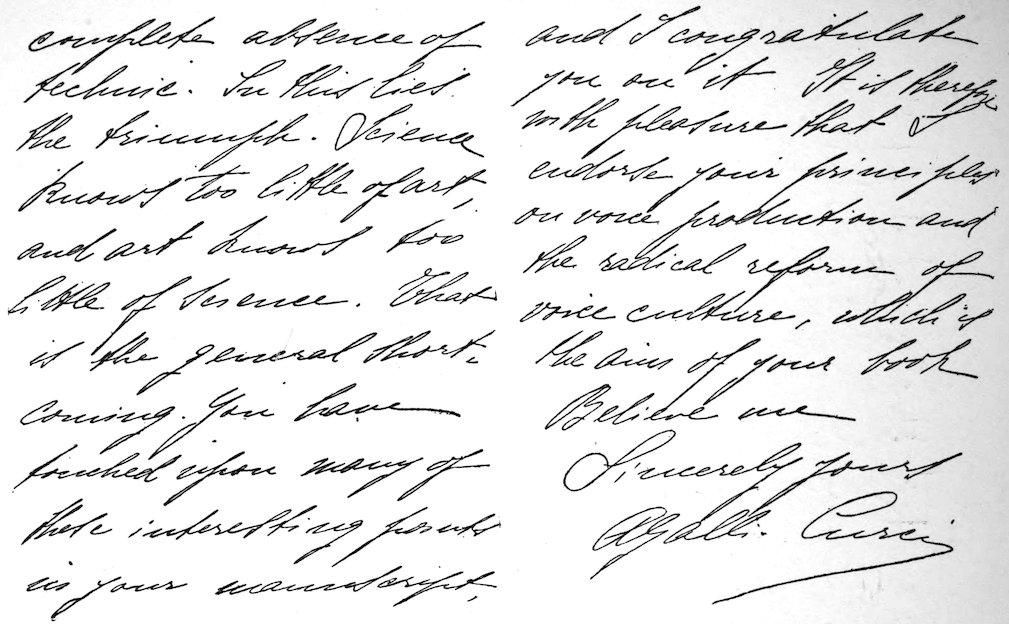 complete absence of
technic. In this lies
the triumph. Science
knows too little of art,
and art knows too
little of science. That
is the general short-
coming. You have
touched upon many of
these interesting points
in your manuscript,
and I congratulate
you on it It is therefore
with pleasure that I
endorse your principles
on voice production and
the radical reform of
voice culture, which is
the aim of your book
Believe me
Sincerely yours
AGalli-Curci